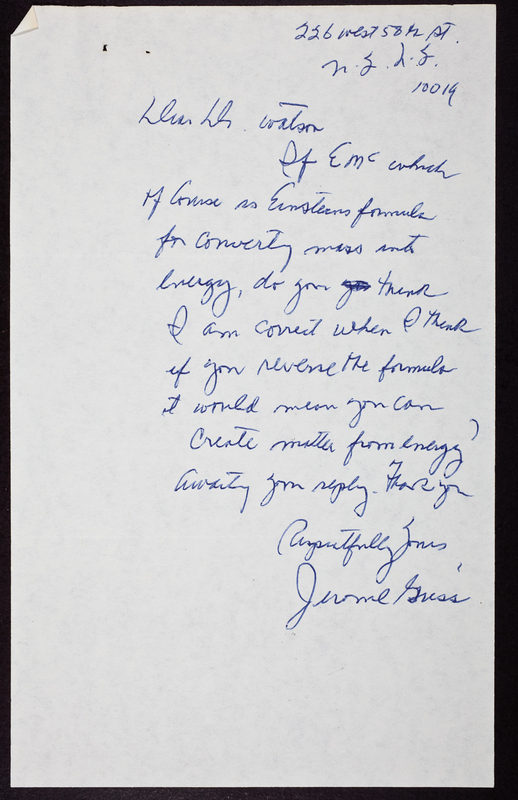 226 West 58th St.
N.Y. N.Y.
10019
Dear Dr. Watson
If EMc which
of Course is Einsteins formula
for converty mass into
energy, do you think
I am correct when I think
if you reverse the formula
it would mean you can
Create matter from energy?
Awaity your reply. Thank you
Respectfully Yours,
Jerome